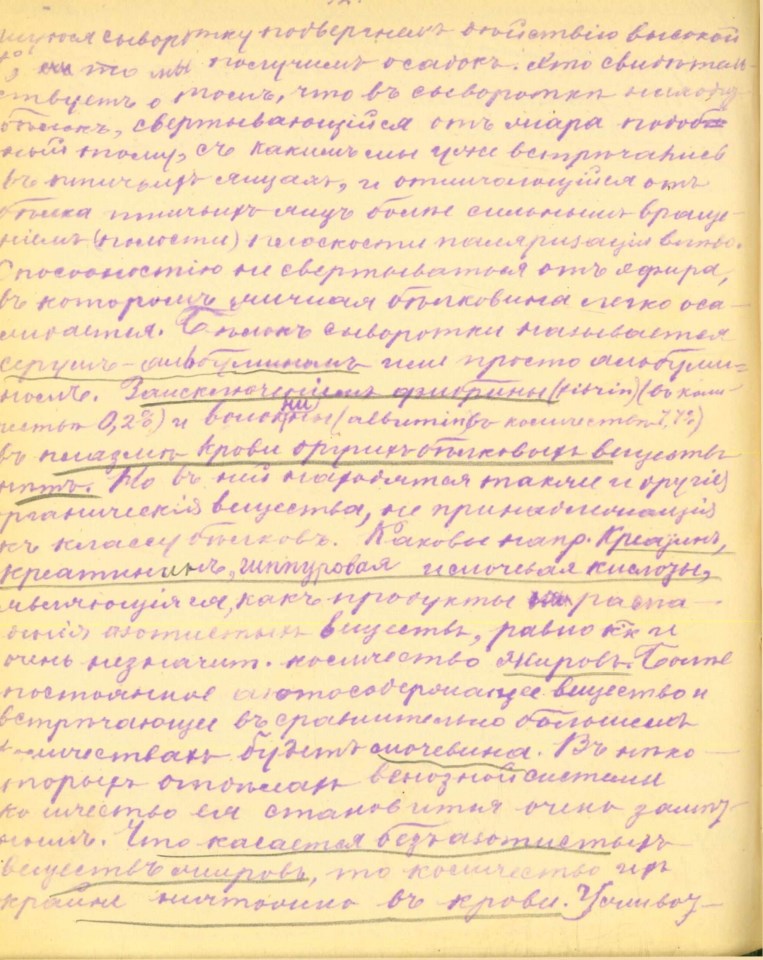 щуюся сыворотку подвергнемъ дѣйствію высокой
t°, то мы получимъ осадокъ. Это свидѣтель-
ствуетъ о томъ, что въ сывороткѣ находи
бѣлокъ, свертывающійся отъ жара подоб-
ный тому, съ какимъ мы уже встрѣчались
въ птичьихъ яйцахъ, и отличающійся отъ
бѣлка птичьихъ яицъ болѣе сильнымъ враще-
ніемъ (полости) плоскости паляризаціи влѣво.
Способностію не свертываться отъ эфира,
въ которомъ яичная бѣлковина легко оса-
ждается. Бѣлокъ сыворотки называется
серумъ-альбуминомъ или просто альбуми-
номъ. Заисключеніемъ фибрины (fibrin) (въ коли-
чествѣ 0,2%) и (albumin въ количествѣ 7,7%)
въ плазмѣ крови другихъ бѣлковыхъ веществъ
нѣтъ. Но въ ней находятся также и другія
органическія вещества, не принадлежащія
къ классу бѣлковъ. Каковы напр. Креатинъ,
креатининъ, гиппуровая и мочевая кислоты,
являющіяся, какъ продукты распа-
денія азотистыхъ веществъ, равно какъ и
очень незначит. количество жировъ. Болѣе
постоянное азотосодержащее вещество и
встрѣчающее въ сравнительно большемъ
количествахъ будетъ мочевина. Въ нѣко-
торыхъ отдѣлахъ венозной системы
количество ея становится очень замѣт-
нымъ. Что касается безъазотистыхъ
веществъ жировъ, то количество ихъ
крайне ничтожно въ крови.